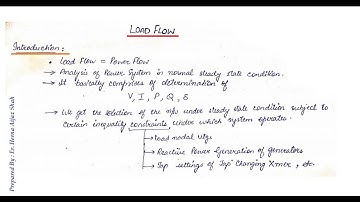 LOAD FLOW
Introduction:
• Load Flow = Power Flow
→ Analysis of Power System in normal steady state condition.
→ It basically comprises of determination of
V, I, P, Q, δ
→ We get the solution of the n/w under steady state condition subject to
certain inequality constraints under which system operates.
→ Load nodal vtgs
→ Reactive Power Generation of generators
→ Tap settings of Tap Changing Xmer, etc.
Prepared By: Er.